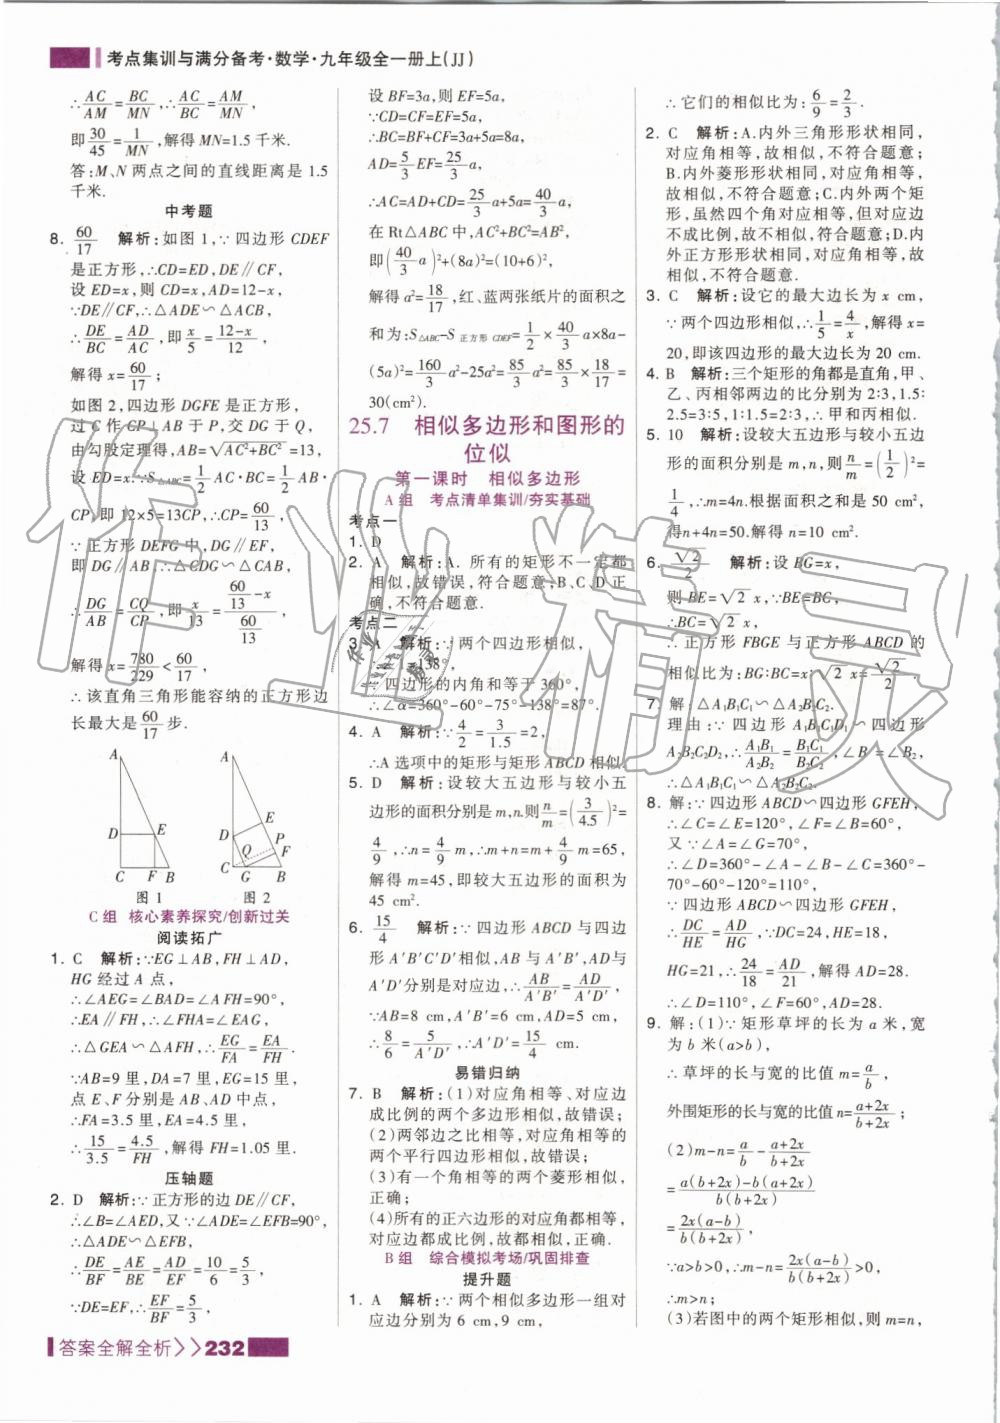 考点集训与满分备考·数学·九年级全一册上(JJ)
∴AC/AM=BC/MN,∴AC/BC=AM/MN,
即30/45=1/MN,解得MN=1.5千米.
答:M、N两点之间的直线距离是1.5
千米.
中考题
8. 60/17 解析:如图1,∵四边形CDEF
是正方形,∴CD=ED,DE∥CF,
设ED=x,则CD=x,AD=12-x,
∵DE∥CF,∴△ADE∽△ACB,
∴DE/BC=AD/AC,即x/5=(12-x)/12,
解得x=60/17;
如图2,四边形DGFE是正方形,
过C作CP⊥AB于P,交DG于Q,
由勾股定理得,AB=√(AC²+BC²)=13,
设ED=x,∵S△ABC=1/2 AC·BC=1/2 AB·
CP,即12×5=13CP,∴CP=60/13,
∵正方形DEFG中,DG∥EF,
即DG∥AB,∴△CDG∽△CAB,
∴DG/AB=CQ/CP,即x/13=(60/13-x)/(60/13)
解得x=780/229<60/17,
∴该直角三角形能容纳的正方形边
长最大是60/17步.
A
D
E
C F B
图1
A
D
E
P
Q
F
C G B
图2
C组 核心素养探究/创新过关
阅读拓广
1. C 解析:∵EG⊥AB,FH⊥AD,
HG经过A点,
∴∠AEG=∠BAD=∠AFH=90°,
∴EA∥FH,∴∠FHA=∠EAG,
∴△GEA∽△AFH,∴EG/FA=EA/FH.
∵AB=9里,DA=7里,EG=15里,
点E、F分别是AB、AD中点,
∴FA=3.5里,EA=4.5里,
∴15/3.5=4.5/FH,解得FH=1.05里.
压轴题
2. D 解析:∵正方形的边DE∥CF,
∴∠B=∠AED,又∵∠ADE=∠EFB=90°,
∴△ADE∽△EFB,
∴DE/BF=AE/BE=AD/EF=10/6=5/3,
∵DE=EF,∴EF/BF=5/3,
设BF=3a,则EF=5a,
∵CD=CF=EF=5a,
∴BC=BF+CF=3a+5a=8a,
AD=5/3EF=25/3 a,
∴AC=AD+CD=25/3 a+5a=40/3 a,
在Rt△ABC中,AC²+BC²=AB²,
即(40/3 a)²+(8a)²=(10+6)²,
解得a²=18/17,红、蓝两张纸片的面积之
和为:S△ABC-S正方形CDEF=1/2×40/3 a×8a-
(5a)²=160/3 a²-25a²=85/3 a²=85/3×18/17=
30(cm²).
25.7 相似多边形和图形的
位似
第一课时 相似多边形
A组 考点清单集训/夯实基础
考点一
1. D
2. A 解析:A.所有的矩形不一定都
相似,故错误,符合题意;B、C、D正
确,不符合题意.
考点二
3. A 解析:∵两个四边形相似,
∴∠2=138°,
∵四边形的内角和等于360°,
∴∠α=360°-60°-75°-138°=87°.
4. A 解析:∵4/2=3/1.5=2,
∴A选项中的矩形与矩形ABCD相似.
5. D 解析:设较大五边形与较小五
边形的面积分别是m,n.则n/m=(3/4.5)²=
4/9,∴n=4/9 m,∴m+n=m+4/9 m=65,
解得m=45,即较大五边形的面积为
45 cm².
6. 15/4 解析:∵四边形ABCD与四边
形A′B′C′D′相似,AB与A′B′,AD与
A′D′分别是对应边,∴AB/A′B′=AD/A′D′,
∵AB=8 cm,A′B′=6 cm,AD=5 cm,
∴8/6=5/A′D′,∴A′D′=15/4 cm.
易错归纳
7. B 解析:(1)对应角相等、对应边
成比例的两个多边形相似,故错误;
(2)两邻边之比相等,对应角相等的
两个平行四边形相似,故错误;
(3)有一个角相等的两个菱形相似,
正确;
(4)所有的正六边形的对应角都相等,
对应边都成比例,故都相似,正确.
B组 综合模拟考场/巩固排查
提升题
1. A 解析:∵两个相似多边形一组对
应边分别为6 cm,9 cm,
∴它们的相似比为:6/9=2/3.
2. C 解析:A.内外三角形形状相同,
对应角相等,故相似,不符合题意;
B.内外菱形形状相同,对应角相等,
故相似,不符合题意;C.内外两个矩
形,虽然四个角对应相等,但对应边
不成比例,故不相似,符合题意;D.内
外正方形形状相同,对应角相等,故
相似,不符合题意.
3. C 解析:设它的最大边长为x cm,
∵两个四边形相似,∴1/5=4/x,解得x=
20,即该四边形的最大边长为20 cm.
4. B 解析:三个矩形的角都是直角,甲、
乙、丙相邻两边的比分别为2:3,1.5:
2.5=3:5,1:1.5=2:3,∴甲和丙相似.
5. 10 解析:设较大五边形与较小五边
形的面积分别是m,n,则n/m=(1/2)²=
1/4,∴m=4n.根据面积之和是50 cm²,
得n+4n=50.解得n=10 cm².
6. √2/2 解析:设BG=x,
则BE=√2 x,∵BE=BC,
∴BC=√2 x,
∴正方形FBGE与正方形ABCD的
相似比为:BG:BC=x:√2 x=√2/2.
7. 解:△A₁B₁C₁∽△A₂B₂C₂.
理由:∵四边形A₁B₁C₁D₁∽四边形
A₂B₂C₂D₂,∴A₁B₁/A₂B₂=B₁C₁/B₂C₂,∠B₁=∠B₂,
∴△A₁B₁C₁∽△A₂B₂C₂.
8. 解:∵四边形ABCD∽四边形GFEH,
∴∠C=∠E=120°,∠F=∠B=60°,
又∵∠A=∠G=70°,
∴∠D=360°-∠A-∠B-∠C=360°-
70°-60°-120°=110°,
∵四边形ABCD∽四边形GFEH,
∴DC/HE=AD/HG,∵DC=24,HE=18,
HG=21,∴24/18=AD/21,解得AD=28.
∴∠D=110°,∠F=60°,AD=28.
9. 解:(1)∵矩形草坪的长为a米,宽
为b米(a>b),
∴草坪的长与宽的比值m=a/b,
外围矩形的长与宽的比值n=(a+2x)/(b+2x);
(2)m-n=a/b-(a+2x)/(b+2x)
=[a(b+2x)-b(a+2x)]/[b(b+2x)]
=2x(a-b)/[b(b+2x)],
∵a>b>0,∴m-n=2x(a-b)/[b(b+2x)]>0,
∴m>n;
(3)若图中的两个矩形相似,则m=n,
答案全解全析>>232
作业精灵